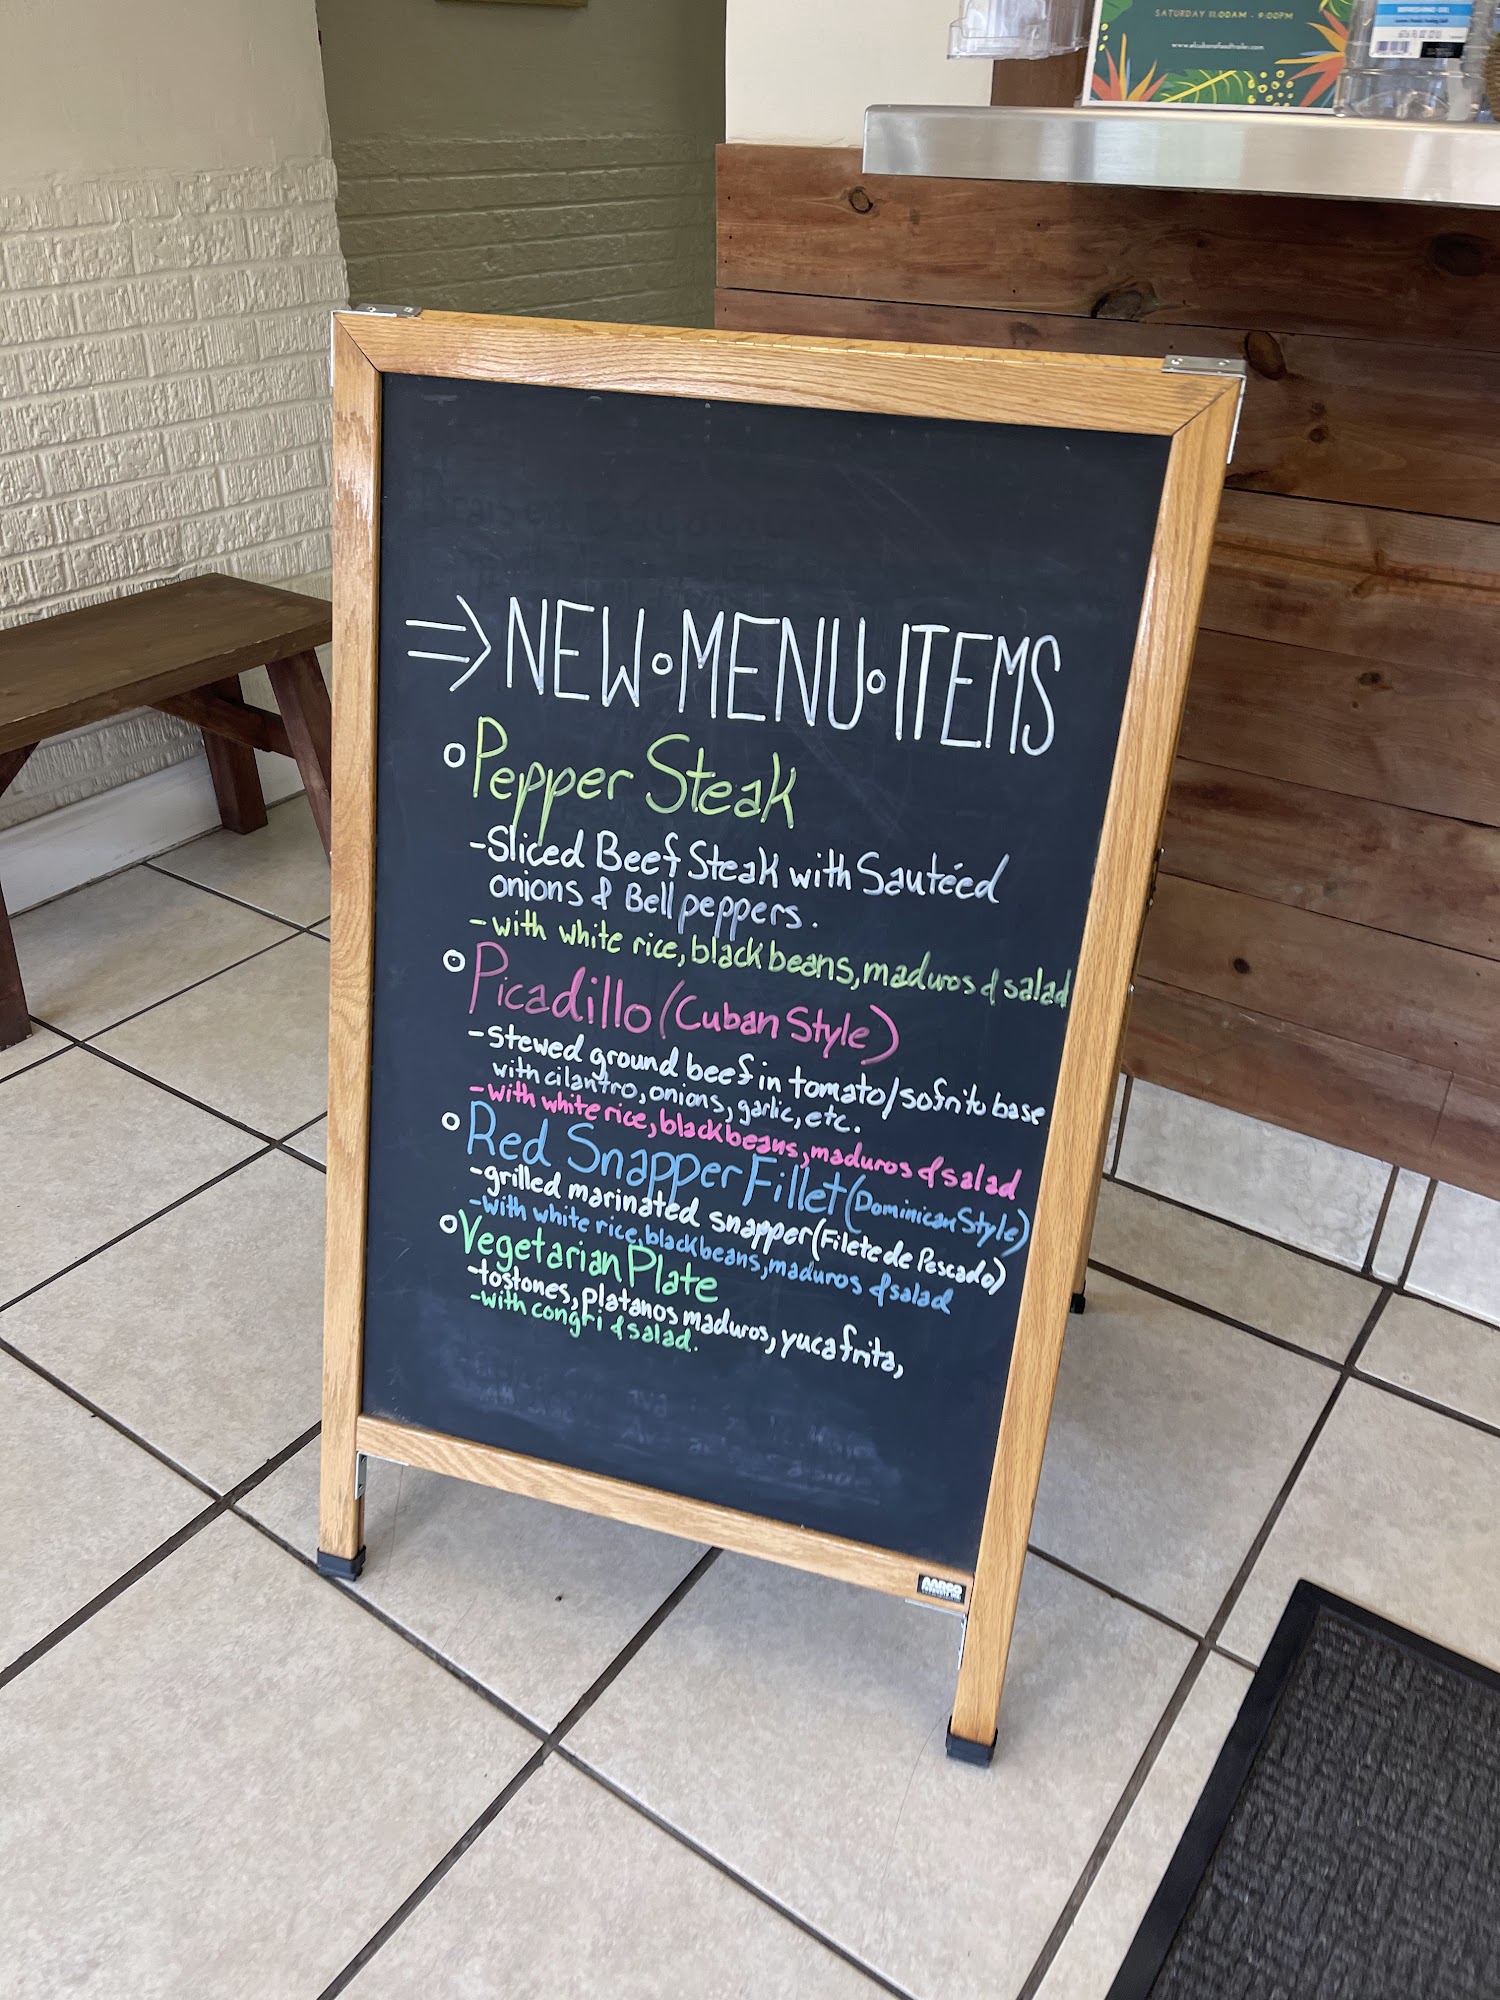 SATURDAY 11:00AM - 9:00PM
REFRESHING GEL
=> NEW • MENU • ITEMS
° Pepper Steak
- Sliced Beef Steak with Sautéed
onions & Bell peppers.
- with white rice, black beans, maduros & salad
° Picadillo (Cuban Style)
- stewed ground beef in tomato/sofrito base
with cilantro, onions, garlic, etc.
- with white rice, black beans, maduros & salad
° Red Snapper Fillet (Dominican Style)
- grilled marinated snapper (Filete de Pescado)
- with white rice, black beans, maduros & salad
° Vegetarian Plate
- tostones, platanos maduros, yuca frita,
- with congri & salad.
AARCO